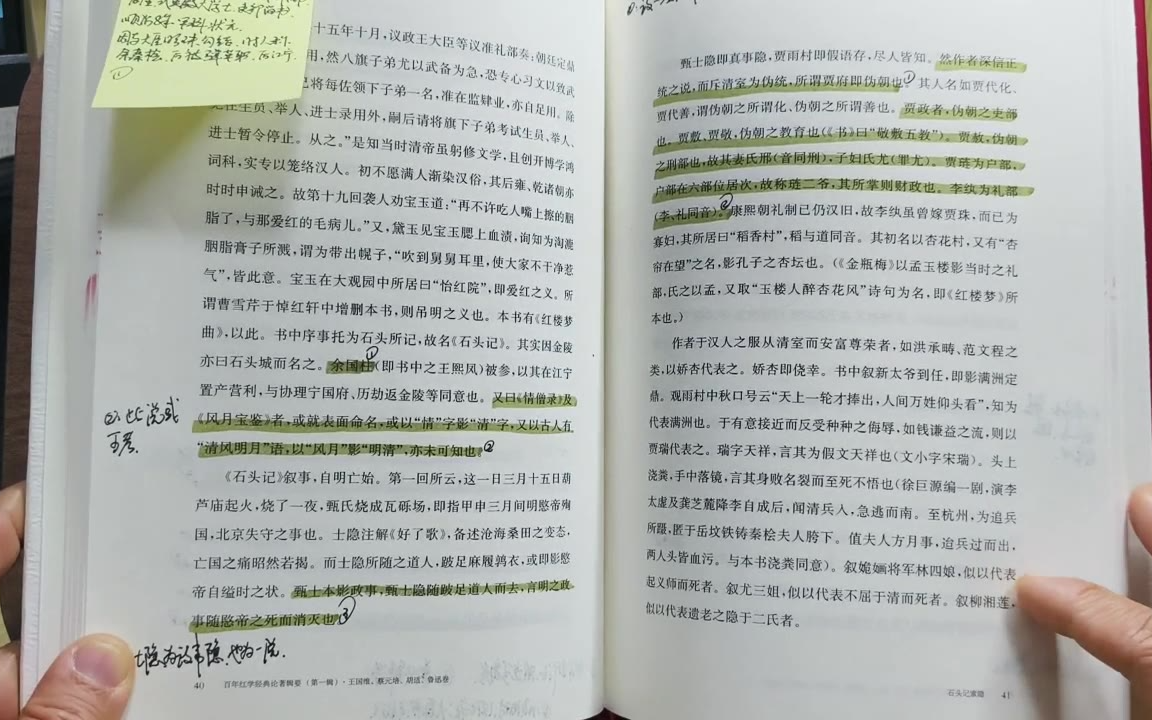 顺治8年
十五年十月，议政王大臣等议准礼部奏；朝廷定鼎
用，然八旗子弟尤以武备为急，恐专心习文以致武
已将每佐领下子弟一名，准在监肄业，亦自足用。除
生员、举人、进士录用外，嗣后请将旗下子弟考试生员、举人、
进士暂令停止。从之。”是知当时清帝虽躬修文学，且创开博学鸿
词科，实专以笼络汉人。初不愿满人渐染汉俗，其后雍、乾诸朝亦
时时申诫之。故第十九回袭人劝宝玉道：“再不许吃人嘴上擦的胭
脂了，与那爱红的毛病儿。”又，黛玉见宝玉腮上血渍，询知为淘澄
胭脂膏子所溅，谓为带出幌子，“吹到舅舅耳里，使大家不干净惹
气”，皆此意。宝玉在大观园中所居曰“怡红院”，即爱红之义。所
谓曹雪芹于悼红轩中增删本书，则吊明之义也。本书有《红楼梦
曲》，以此。书中序事托为石头所记，故名《石头记》。其实因金陵
亦曰石头城而名之。余国柱（即书中之王熙凤）被参，以其在江宁
置产营利，与协理宁国府、历劫返金陵等同意也。又曰《情僧录》及
《风月宝鉴》者，或就表面命名，或以“情”字影“清”字，又以古人有
“清风明月”语，以“风月”影“明清”，亦未可知也。
《石头记》叙事，自明亡始。第一回所云，这一日三月十五日葫
芦庙起火，烧了一夜，甄氏烧成瓦砾场，即指甲申三月间明愍帝殉
国，北京失守之事也。士隐注解《好了歌》，备述沧海桑田之变态，
亡国之痛昭然若揭。而士隐所随之道人，跛足麻履鹑衣，或即影愍
帝自缢时之状。甄士本影政事，甄士隐随跛足道人而去，言明之政
事随愍帝之死而消灭也
士隐为政事隐，也为一说.
40 百年红学经典论著辑要（第一辑）·王国维、蔡元培、胡适、鲁迅卷
甄士隐即真事隐，贾雨村即假语存，尽人皆知。然作者深信正
统之说，而斥清室为伪统，所谓贾府即伪朝也。其人名如贾代化、
贾代善，谓伪朝之所谓化、伪朝之所谓善也。贾政者，伪朝之吏部
也。贾敷、贾敬，伪朝之教育也（《书》曰“敬敷五教”）。贾赦，伪朝
之刑部也，故其妻氏邢（音同刑），子妇氏尤（罪尤）。贾琏为户部，
户部在六部位居次，故称琏二爷，其所掌则财政也。李纨为礼部
（李、礼同音）。康熙朝礼制已仍汉旧，故李纨虽曾嫁贾珠，而已为
寡妇，其所居曰“稻香村”，稻与道同音。其初名以杏花村，又有“杏
帘在望”之名，影孔子之杏坛也。（《金瓶梅》以孟玉楼影当时之礼
部，氏之以孟，又取“玉楼人醉杏花风”诗句为名，即《红楼梦》所
本也。）
作者于汉人之服从清室而安富尊荣者，如洪承畴、范文程之
类，以娇杏代表之。娇杏即侥幸。书中叙新太爷到任，即影满洲定
鼎。观雨村中秋口号云“天上一轮才捧出，人间万姓仰头看”，知为
代表满洲也。于有意接近而反受种种之侮辱，如钱谦益之流，则以
贾瑞代表之。瑞字天祥，言其为假文天祥也（文小字宋瑞）。头上
浇粪，手中落镜，言其身败名裂而至死不悟也（徐巨源编一剧，演李
太虚及龚芝麓降李自成后，闻清兵入，急逃而南。至杭州，为追兵
所蹑，匿于岳坟铁铸秦桧夫人胯下。值夫人方月事，迨兵过而出，
两人头皆血污。与本书浇粪同意）。叙姽婳将军林四娘，似以代表
起义师而死者。叙尤三姐，似以代表不屈于清而死者。叙柳湘莲，
似以代表遗老之隐于二氏者。
石头记索隐 41